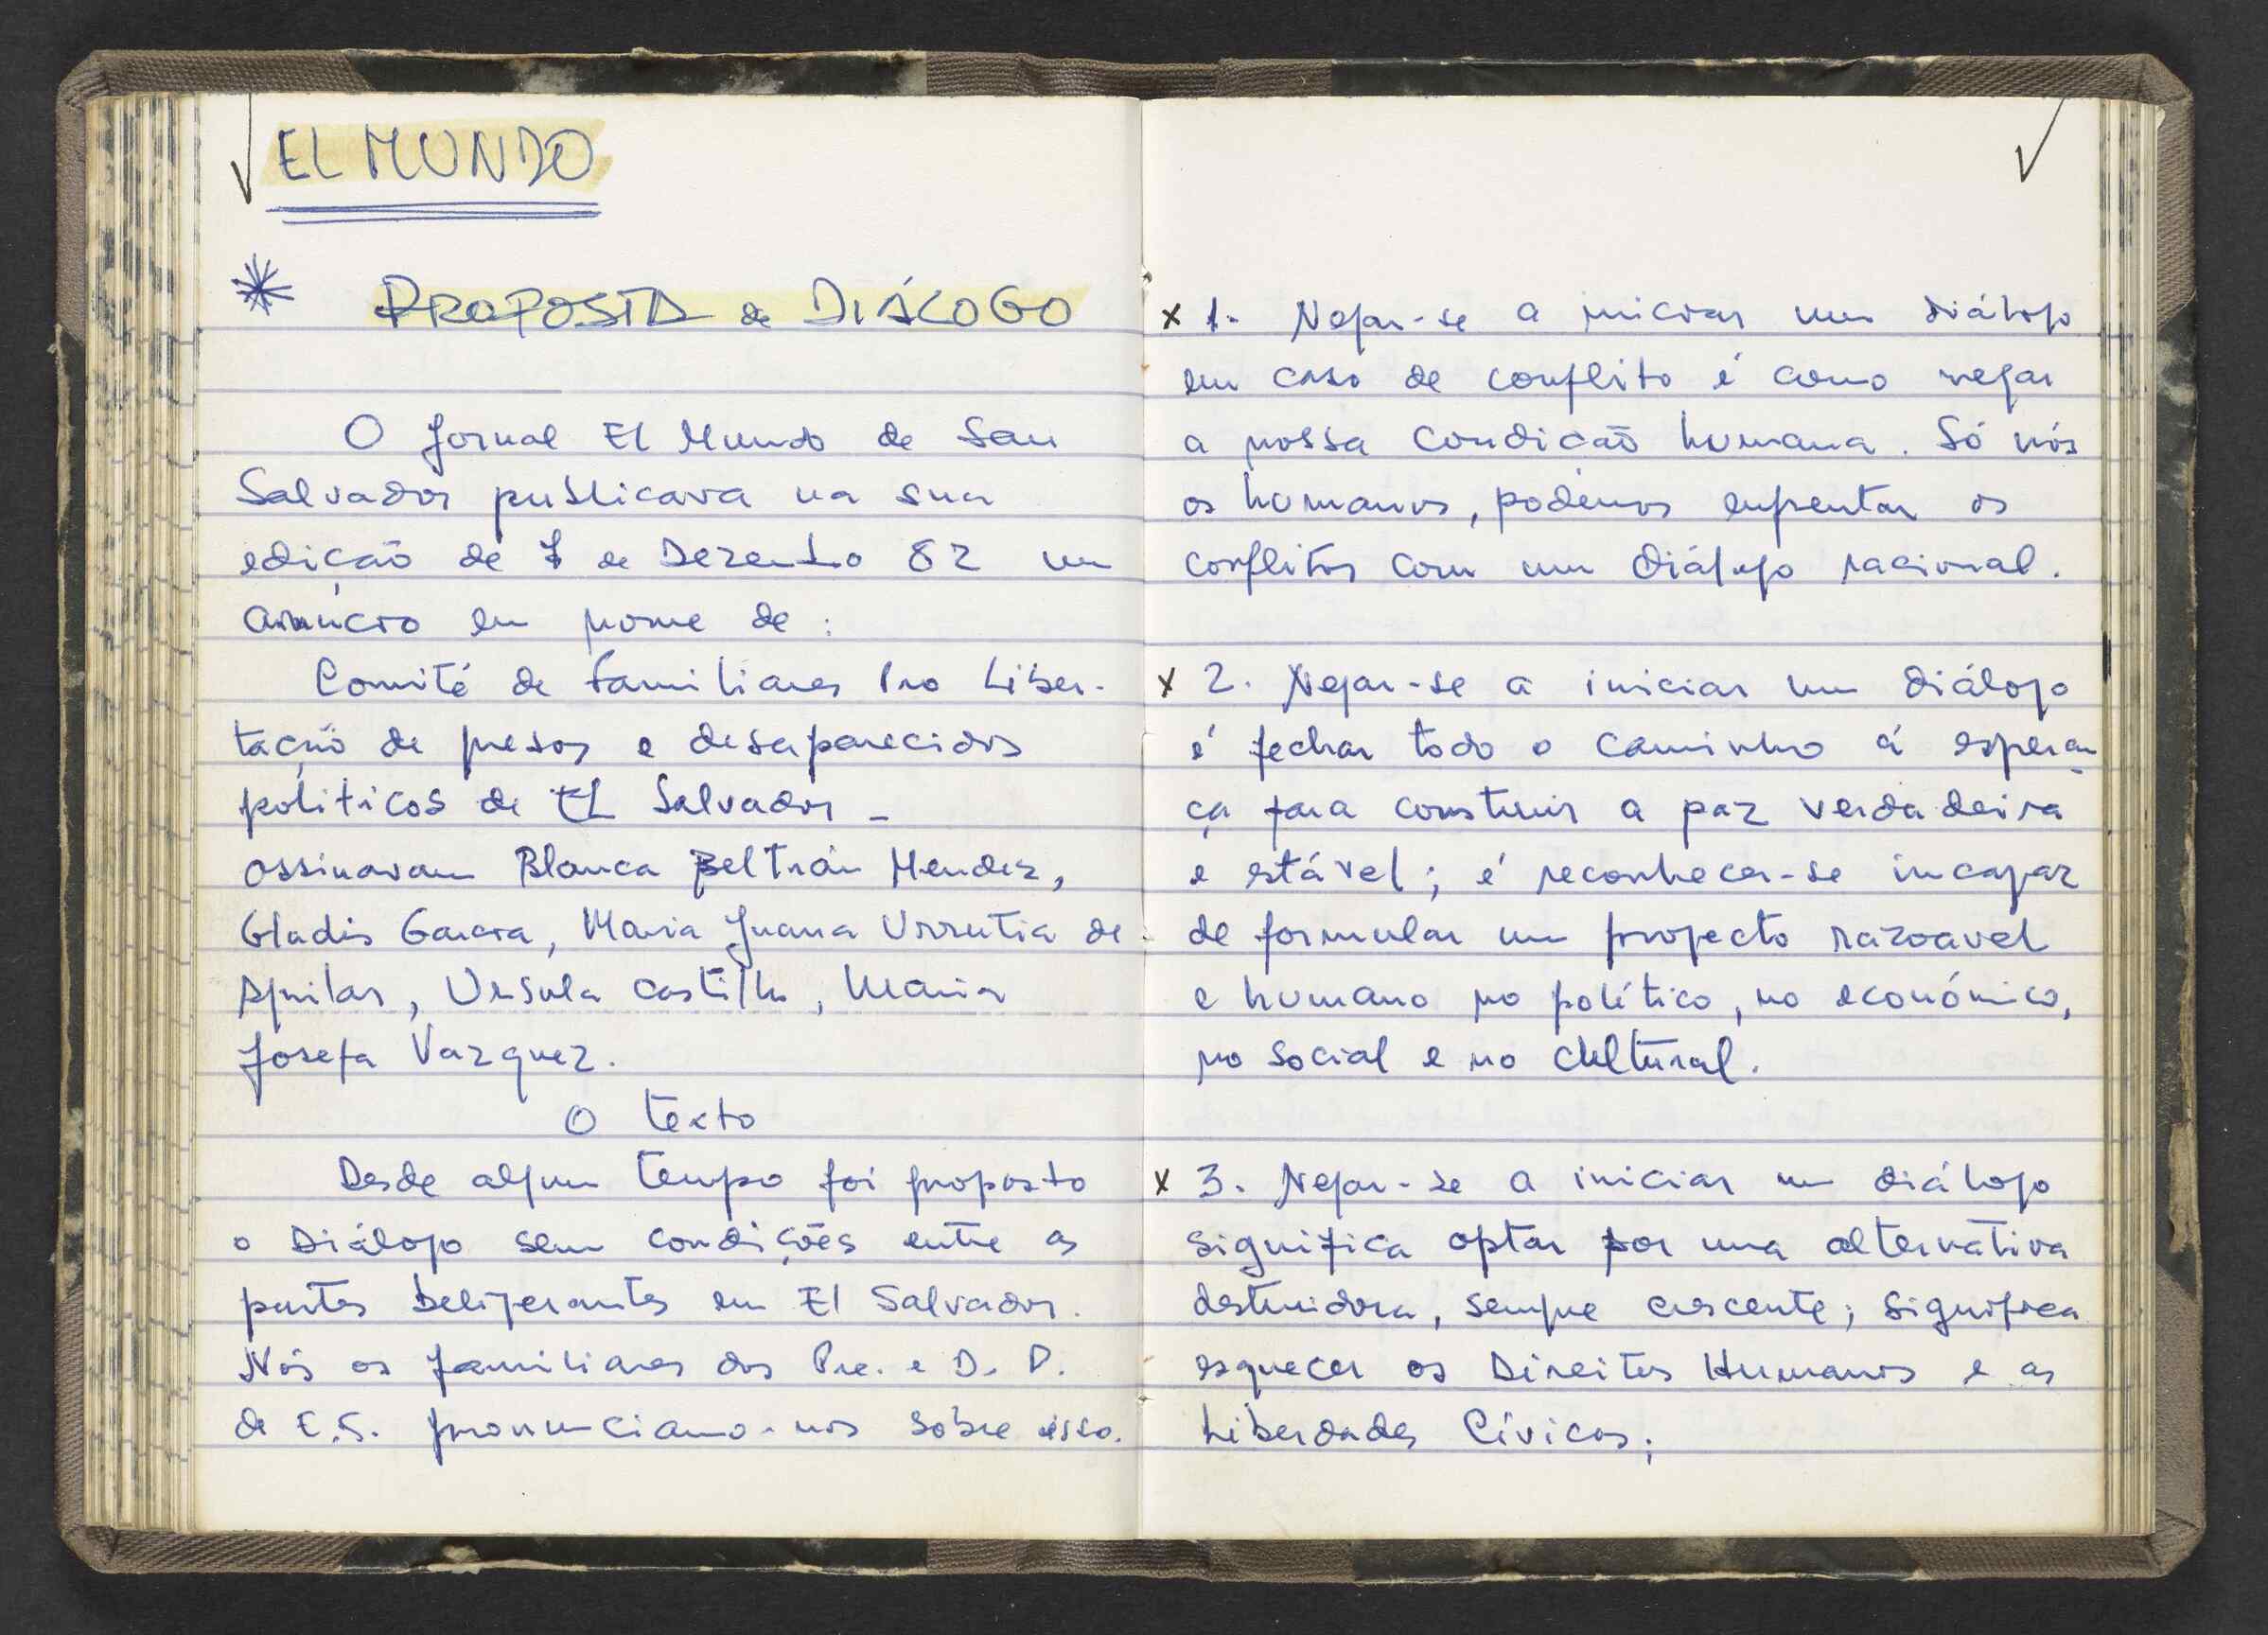 EL MUNDO
PROPOSTA de DIÁLOGO
O Jornal El Mundo de San
Salvador publicava na sua
edição de 7 de Dezembro 82 um
anúncio em nome de:
Comité de familiares Pro Liber-
tação de presos e desaparecidos
políticos de EL Salvador -
assinavam Blanca Beltrán Mendez,
Gladis Garcia, Maria Juana Urrutia de
Aguilar, Ursula Castilho, Maria
Josefa Vazquez.
O texto
Desde algum tempo foi proposto
o Diálogo sem condições entre as
partes beligerantes em El Salvador.
Nós os familiares dos Pre. e D. P.
de E.S. pronunciamo-nos sobre isso.
x 1. Negar-se a iniciar um diálogo
em caso de conflito é como negar
a nossa condição humana. Só nós
os humanos, podemos enfrentar os
conflitos com um diálogo racional.
x 2. Negar-se a iniciar um diálogo
é fechar todo o caminho á esperan
ça para construir a paz verdadeira
e estável; é reconhecer-se incapaz
de formular um projecto razoavel
e humano no político, no económico,
no social e no cultural.
x 3. Negar-se a iniciar um diálogo
significa optar por uma alternativa
destruidora, sempre crescente; significa
esquecer os Direitos Humanos e as
Liberdades Cívicas;